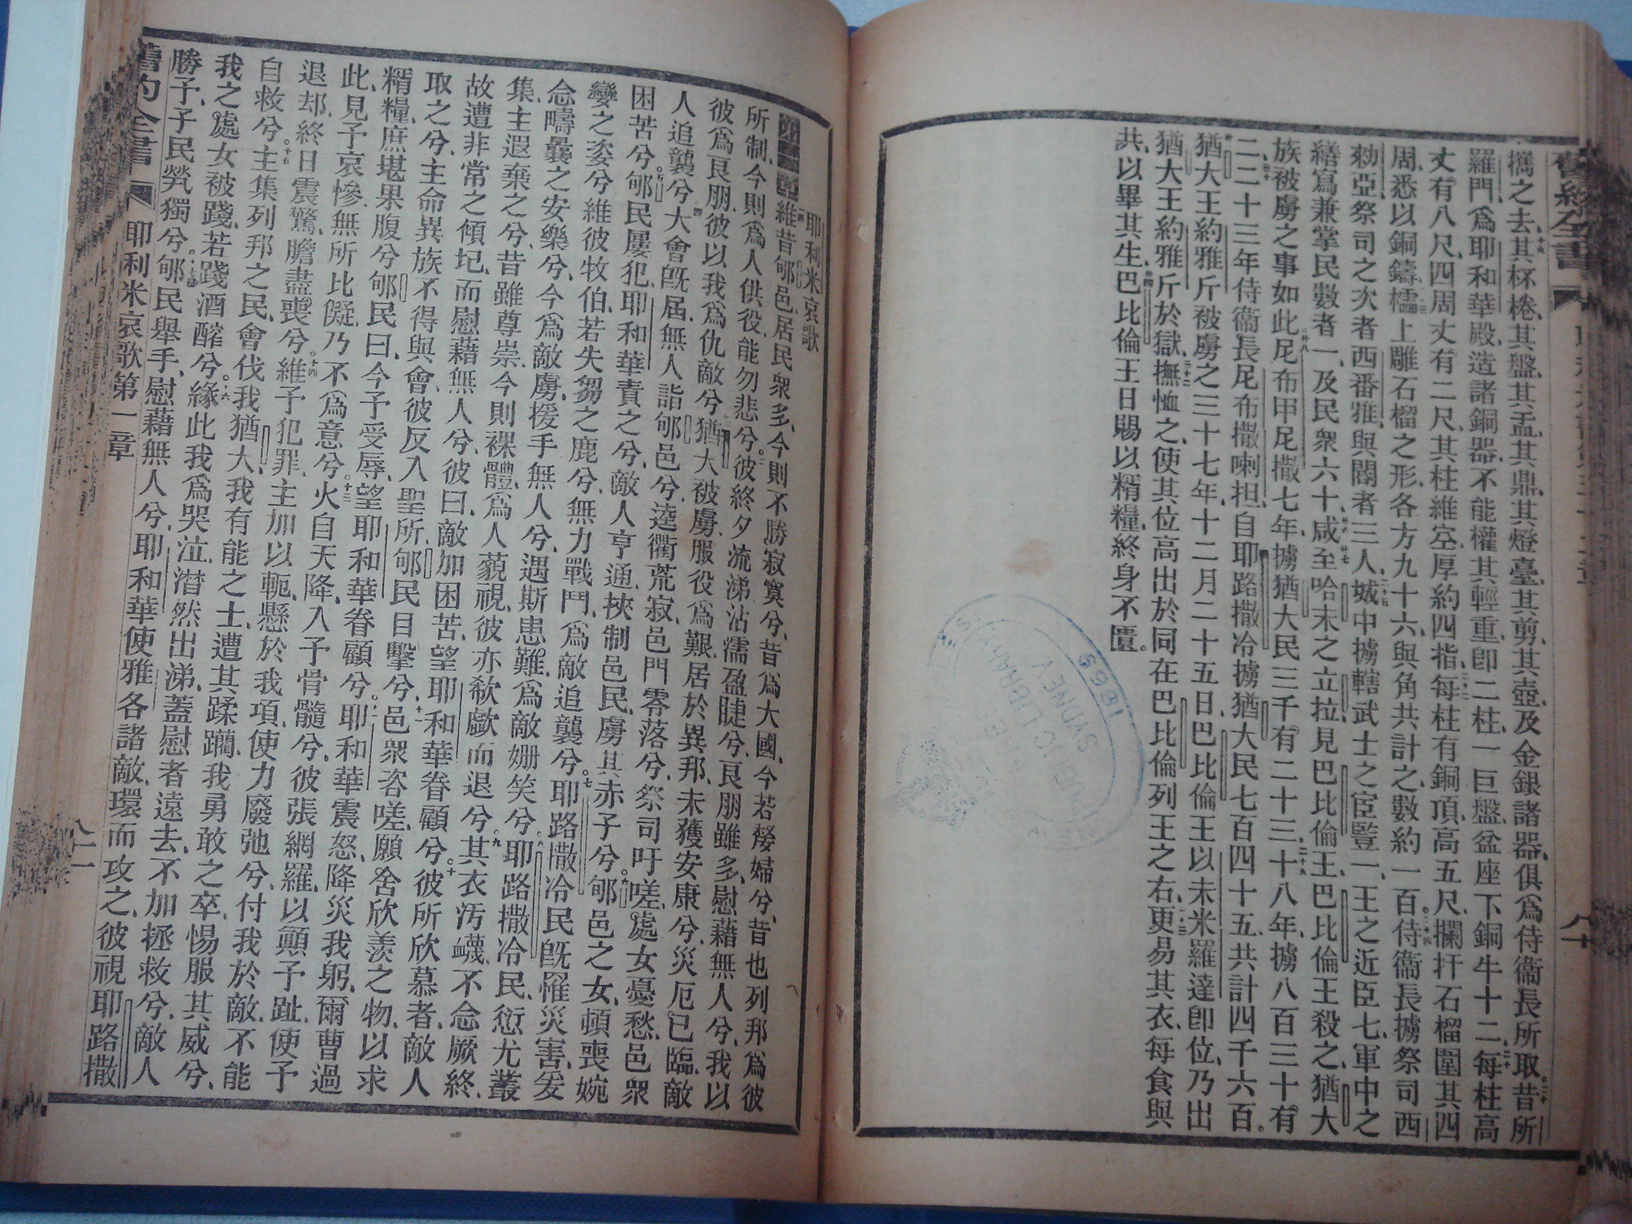 舊約全書
攜之去其杯棬其盤其盂其鼎其燈臺其剪其壺及金銀諸器俱爲侍衞長所取昔所
羅門爲耶和華殿造諸銅器不能權其輕重卽二柱一巨盤盆座下銅牛十二每柱高
丈有八尺四周丈有二尺其柱維空厚約四指每柱有銅頂高五尺欄扞石榴圍其四
周悉以銅鑄檽上雕石榴之形各方九十六與角共計之數約一百侍衞長擄祭司西
勑亞祭司之次者西番雅與閽者三人城中擄轄武士之宦豎一王之近臣七軍中之
繕寫兼掌民數者一及民衆六十咸至哈末之立拉見巴比倫王巴比倫王殺之猶大
族被虜之事如此尼布甲尼撒七年擄猶大民三千有二十三十八年擄八百三十有
二二十三年侍衞長尼布撒喇担自耶路撒冷擄猶大民七百四十五共計四千六百
猶大王約雅斤被虜之三十七年十二月二十五日巴比倫王以未米羅達卽位乃出
猶大王約雅斤於獄撫恤之使其位高出於同在巴比倫列王之右更易其衣每食與
共以畢其生巴比倫王日賜以精糧終身不匱
八十
耶利米哀歌
第一章維昔郇邑居民衆多今則不勝寂寞兮昔爲大國今若嫠婦兮昔也列邦爲彼
所制今則爲人供役能勿悲兮彼終夕流涕沾濡盈睫兮良朋雖多慰藉無人兮我以
彼爲良朋彼以我爲仇敵兮猶大被虜服役爲艱居於異邦未獲安康兮災厄已臨敵
人追襲兮大會旣屆無人詣郇邑兮逵衢荒寂邑門零落兮祭司吁嗟處女憂愁邑衆
困苦兮郇民屢犯耶和華責之兮敵人亨通挾制邑民虜其赤子兮郇邑之女頓喪婉
孌之姿兮維彼牧伯若失芻之鹿兮無力戰鬥爲敵追襲兮耶路撒冷民旣罹災害爰
念疇曩之安樂兮今爲敵虜援手無人兮遇斯患難爲敵姍笑兮耶路撒冷民愆尤叢
集主遐棄之兮昔雖尊崇今則裸體爲人藐視彼亦欷歔而退兮其衣汚衊不念厥終
故遭非常之傾圮而慰藉無人兮彼曰敵加困苦望耶和華眷顧兮彼所欣慕者敵人
取之兮主命異族不得與會彼反入聖所郇民目擊兮邑衆咨嗟願舍欣羨之物以求
糈糧庶堪果腹兮郇民曰今予受辱望耶和華眷顧兮耶和華震怒降災我躬爾曹過
此見予哀慘無所比儗乃不爲意兮火自天降入予骨髓兮彼張網羅以顚予趾使予
退却終日震驚膽盡喪兮維予犯罪主加以軛懸於我項使力廢弛兮付我於敵不能
自救兮主集列邦之民會伐我猶大我有能之士遭其蹂躪我勇敢之卒惕服其威兮
我之處女被踐若踐酒醡兮緣此我爲哭泣潸然出涕蓋慰者遠去不加拯救兮敵人
勝予予民煢獨兮郇民舉手慰藉無人兮耶和華使雅各諸敵環而攻之彼視耶路撒
舊約全書
耶利米哀歌第一章
八十一